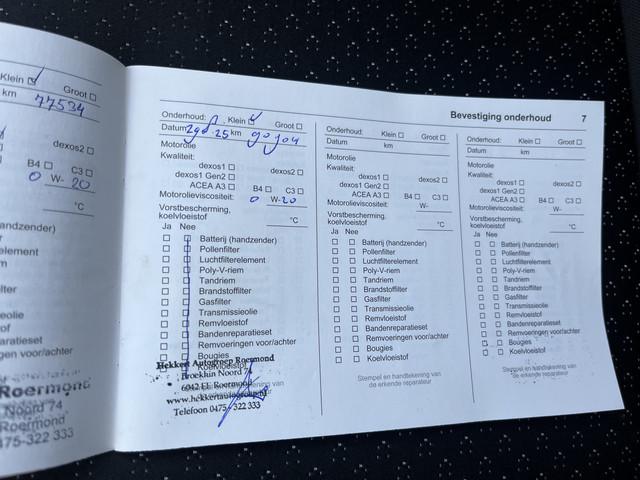 Klein
Groot
km 77534
dexos2
B4 C3
0 W-20
°C
Roermond
Noord 74
Roermond
475-322 333
Bevestiging onderhoud 7
Onderhoud: Klein Groot
Datum km
Motorolie
Kwaliteit:
dexos1 dexos2
dexos1 Gen2
ACEA A3 B4 C3
Motorolieviscositeit: 0 W-20
Vorstbescherming,
koelvloeistof °C
Ja Nee
Batterij (handzender)
Pollenfilter
Luchtfilterelement
Poly-V-riem
Tandriem
Brandstoffilter
Gasfilter
Transmissieolie
Remvloeistof
Bandenreparatieset
Remvoeringen voor/achter
Bougies
Koelvloeistof
Hekkert Autogroep Roermond
Broekhin Noord
6042 EL Roermond
www.hekkertautogroep.nl
Telefoon 0475 - 322 333
Onderhoud: Klein Groot
Datum km
Motorolie
Kwaliteit:
dexos1 dexos2
dexos1 Gen2
ACEA A3 B4 C3
Motorolieviscositeit: W-
Vorstbescherming,
koelvloeistof °C
Ja Nee
Batterij (handzender)
Pollenfilter
Luchtfilterelement
Poly-V-riem
Tandriem
Brandstoffilter
Gasfilter
Transmissieolie
Remvloeistof
Bandenreparatieset
Remvoeringen voor/achter
Bougies
Koelvloeistof
Stempel en handtekening van
de erkende reparateur
Onderhoud: Klein Groot
Datum km
Motorolie
Kwaliteit:
dexos1 dexos2
dexos1 Gen2
ACEA A3 B4 C3
Motorolieviscositeit: W-
Vorstbescherming,
koelvloeistof °C
Ja Nee
Batterij (handzender)
Pollenfilter
Luchtfilterelement
Poly-V-riem
Tandriem
Brandstoffilter
Gasfilter
Transmissieolie
Remvloeistof
Bandenreparatieset
Remvoeringen voor/achter
Bougies
Koelvloeistof
Stempel en handtekening van
de erkende reparateur